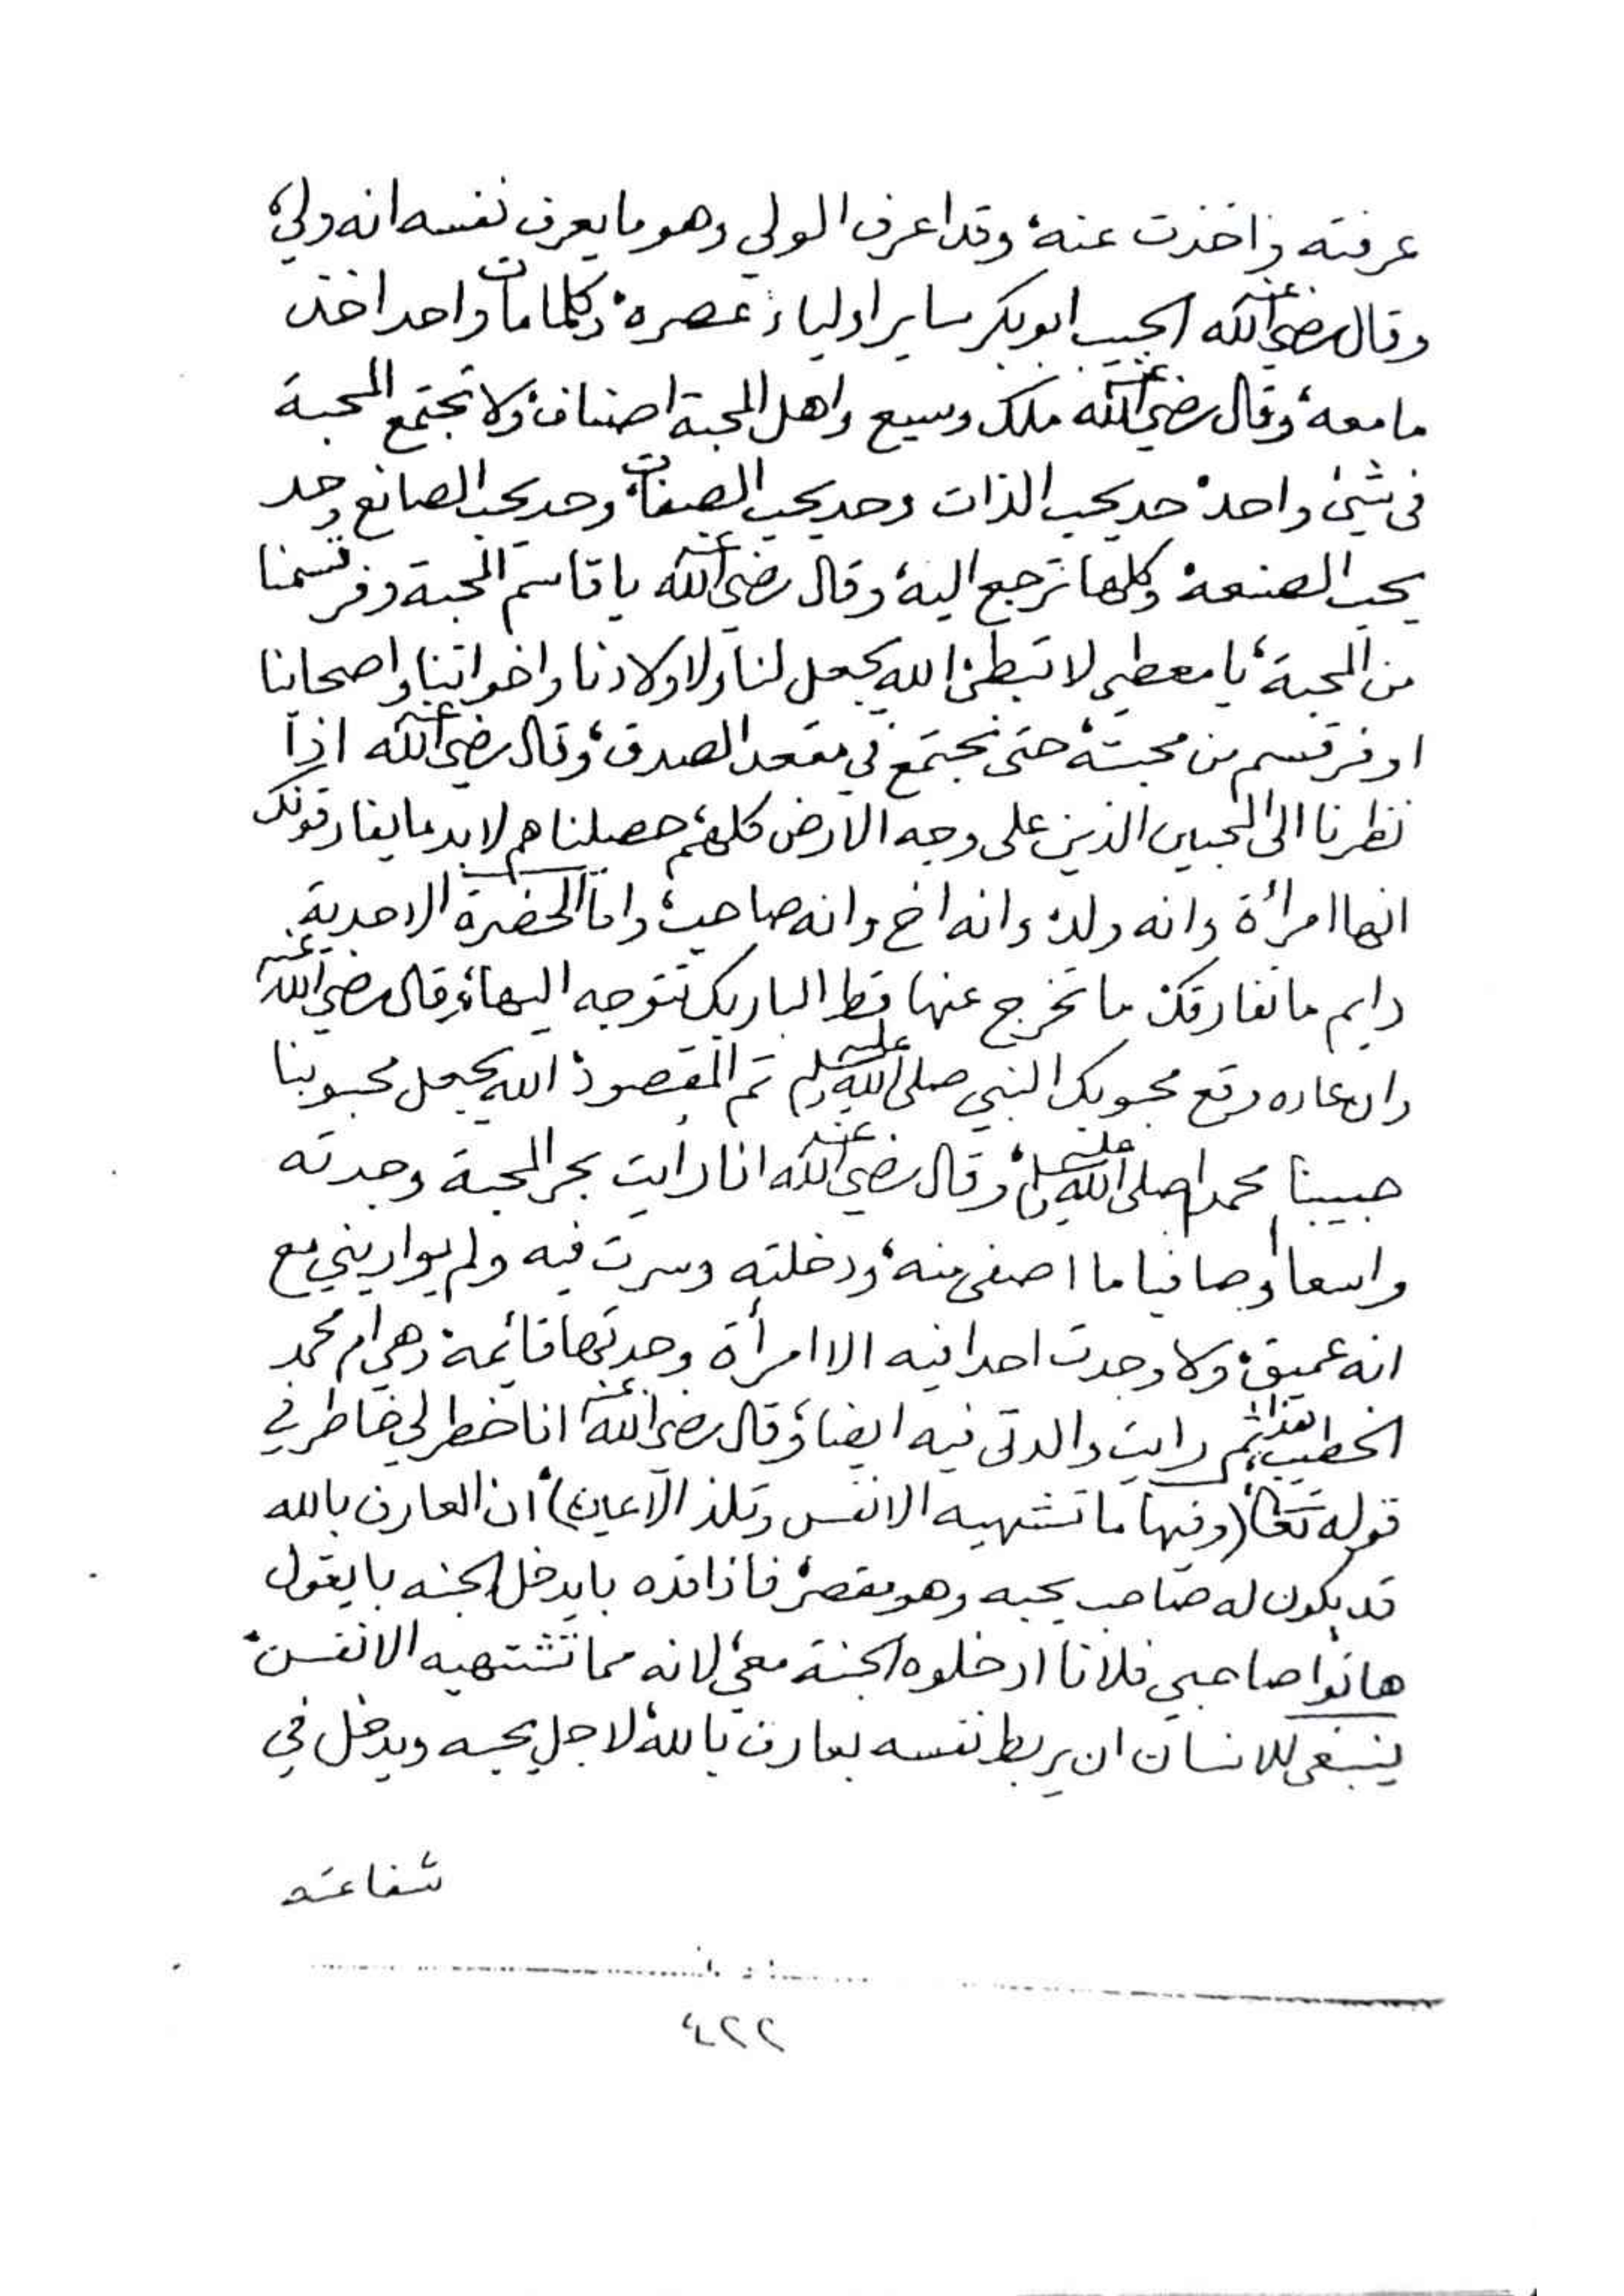 عرفته واخذت عنه، وقد اعرف الولي وهو ما يعرف نفسه انه ولي،
وقال رضي الله عنه الحبيب ابوبكر ساير اولياء عصره، وكلما مات واحد اخذ
ما معه، وقال رضي الله عنه ملك وسيع واهل المحبة اصناف، ولا تجتمع المحبة
في شيئ واحد، حد يحب الذات وحد يحب الصفات، وحد يحب الصانع وحد
يحب الصنعة، وكلها ترجع اليه، وقال رضي الله عنه يا قاسم المحبة وفر قسمنا
من المحبة، يا معطي لا تبطئ الله يجعل لنا ولاولادنا واخواننا واصحابنا
اوفر قسم من محبته، حتى نجتمع في مقعد الصدق، وقال رضي الله عنه اذا
نظرنا الى المحبين الذين على وجه الارض كلهم، حصلناهم لابد ما يفارقونك
انها امرأة وانه ولد، وانه اخ وانه صاحب، واما الحضرة الاحدية
دايم ما تفارقك، ما تخرج عنها قط الباريك تتوجه اليها، وقال رضي الله عنه
وان عاده وقع محبوبك النبي صلى الله عليه وسلم تم المقصود، الله يجعل محبوبنا
حبيبنا محمدا صلى الله عليه وسلم، وقال رضي الله عنه انا رايت بحر المحبة وجدته
واسعا وصافيا ما اصفى منه، ودخلته وسرت فيه ولم يواريني مع
انه عميق، ولا وجدت احدا فيه الا امرأة وجدتها قائمة، وهي ام محمد
الخطيب هذا، ثم رايت والدتي فيه ايضا، وقال رضي الله عنه انا خطر لي خاطر في
قوله تعالى، (وفيها ما تشتهيه الانفس وتلذ الاعين)، ان العارف بالله
قد يكون له صاحب يحبه وهو مقصر، فاذا قده بايدخل الجنه بايقول
هاتوا صاحبي فلانا ادخلوه الجنة معي، لانه مما تشتهيه الانفس،
ينبغي للانسان ان يربط نفسه بعارف بالله، لاجل يحبه ويدخل في
شفاعته
٤٢٢